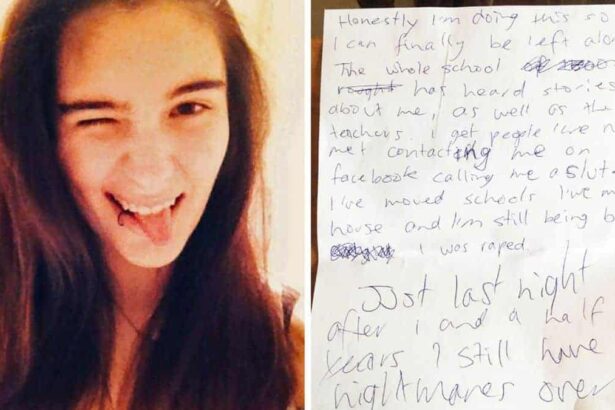 Honestly I'm doing this so
I can finally be left
The whole school
has heard stories
about me, as well as the
teachers. I get people I've
met contacting me on
facebook calling me a slut.
I've moved schools I've
house and I'm still being
I was raped.
JUst last night
after 1 and a half
years I still have
nightmares over